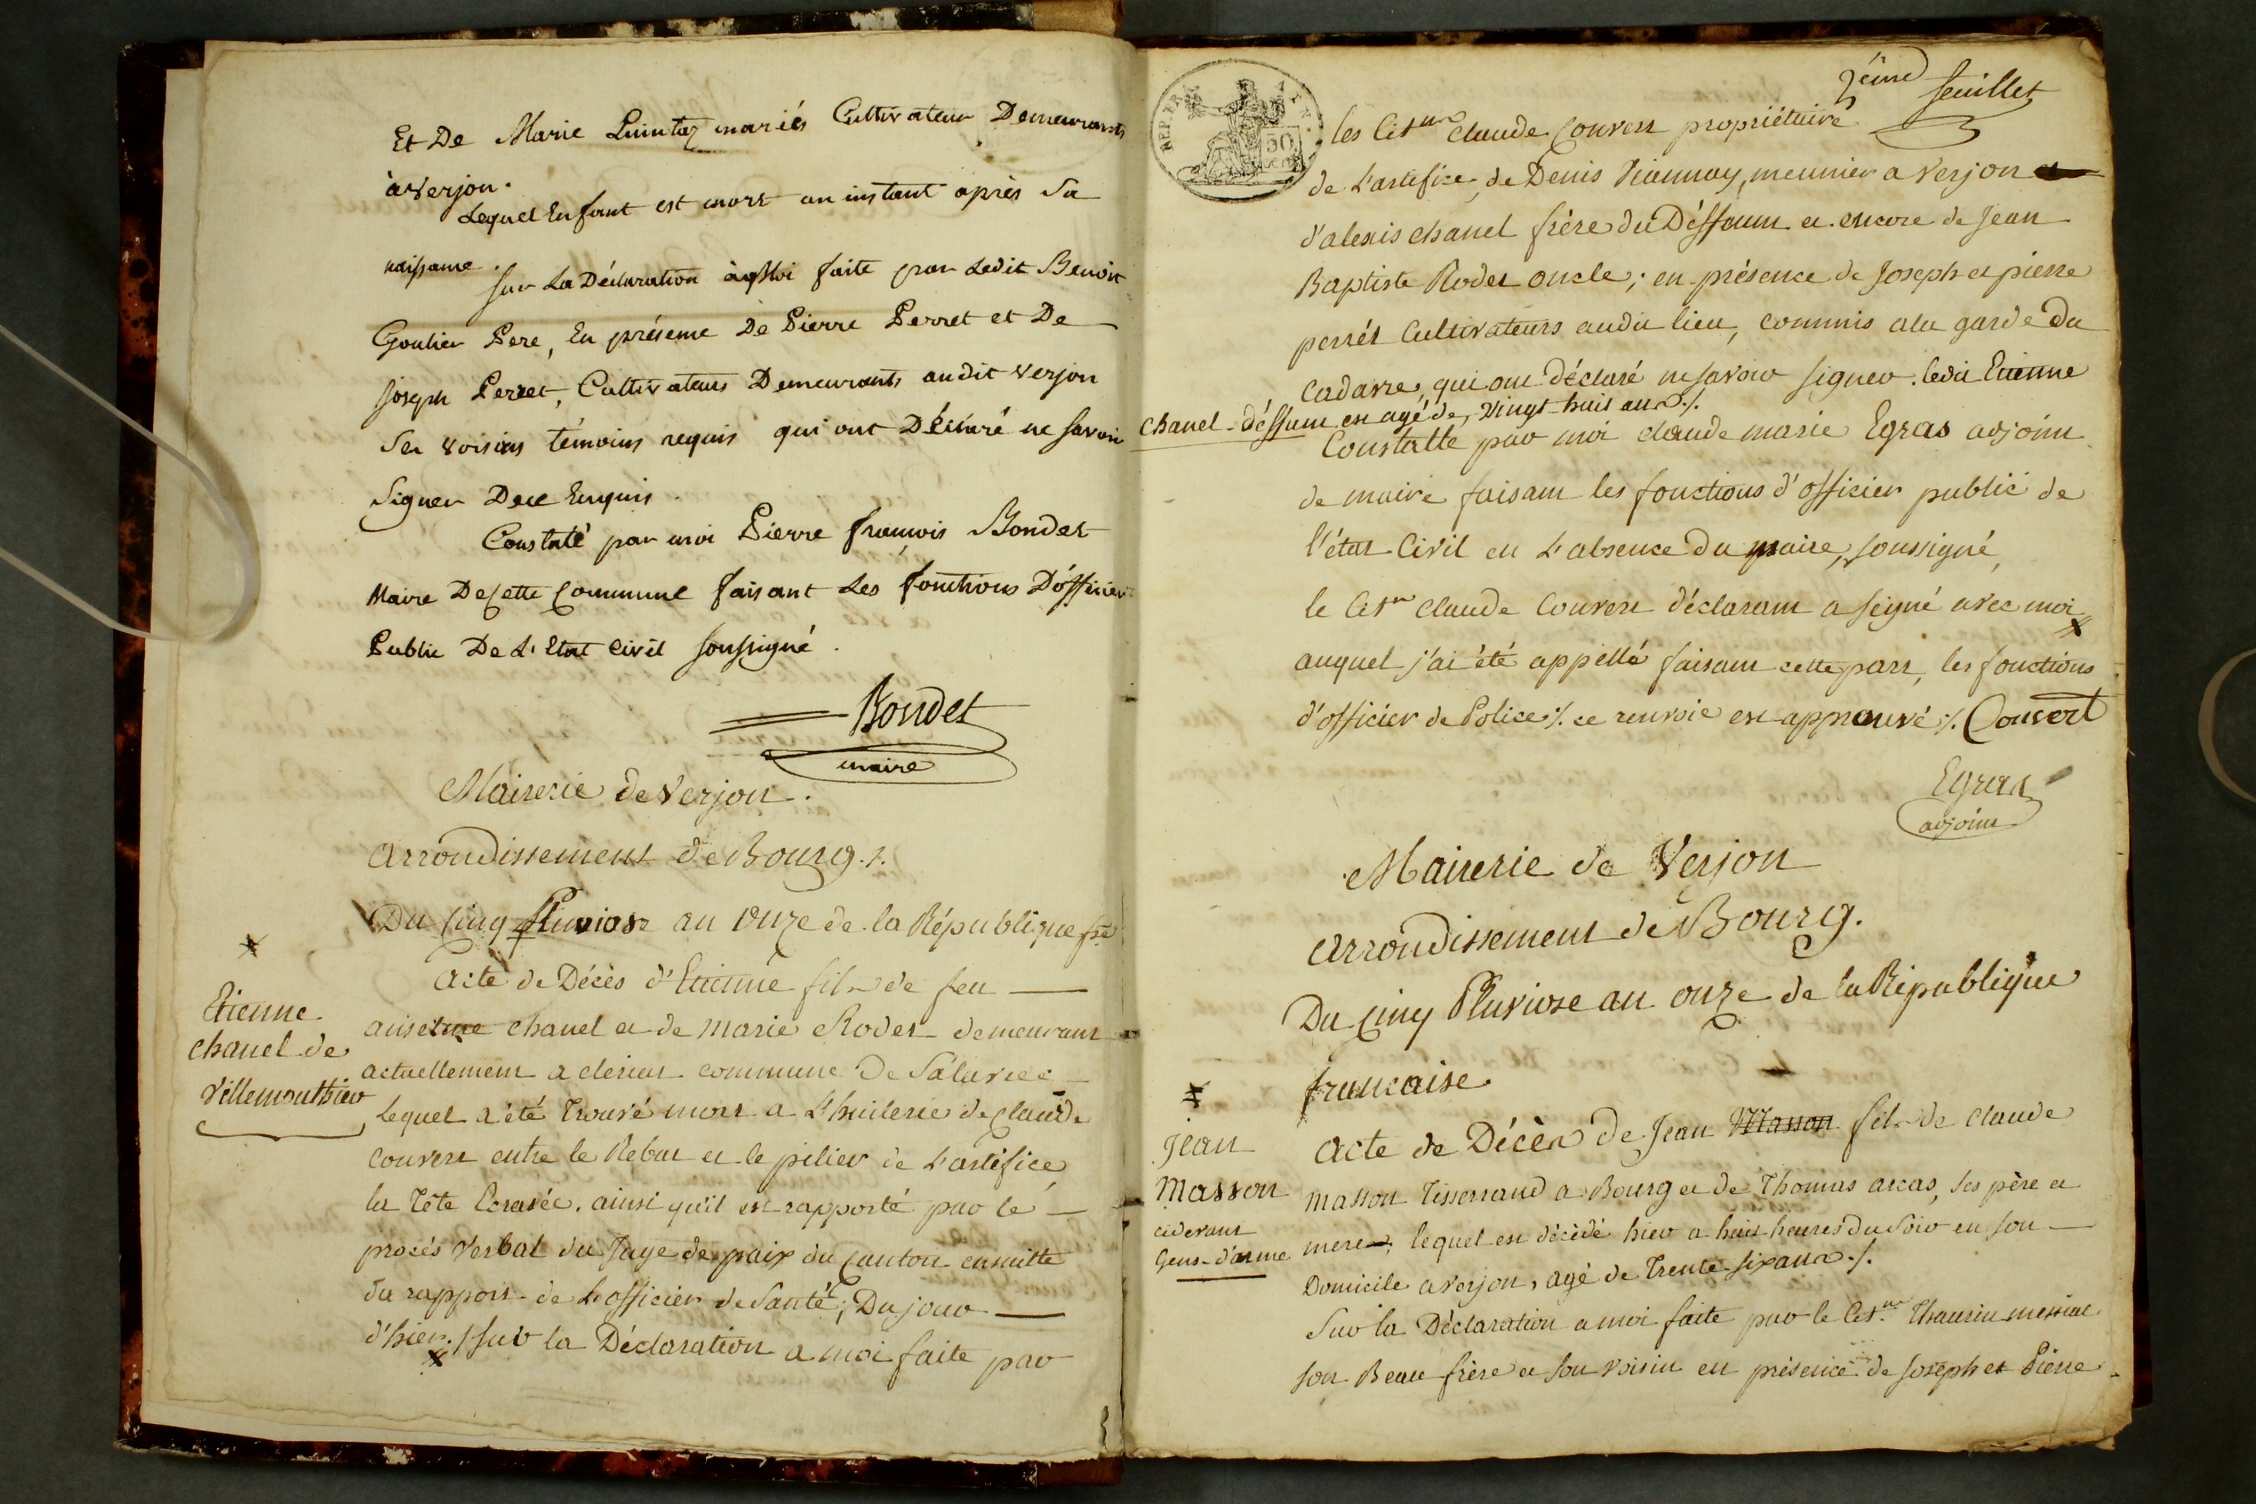 Et De Marie Quintaz mariés Cultivateur Demeurants
à Verjon.
Lequel Enfant est mort un instant après Sa
naissance.
Sur La Déclaration à Moi faite par Ledit Benoit
Goutier Pere, En présence De Pierre Perret et De
Joseph Perret, Cultivateurs Demeurants audit Verjon
Ses voisins témoins requis qui ont Déclaré ne Savoir
Signer Dece Enquis.
Constaté par moi Pierre françois Bondet
Maire De Cette Commune faisant Les fonctions D'officier
Public De L'Etat Civil Soussigné.
Bondet
maire
Mairerie de Verjon.
Arrondissement de Bourg ./.
Du Cinq Pluviose an Onze de la République fse
Acte de Décès d'Etienne fils de feu
Etienne
chanel de
Villemouthier
anselme chanel et de Marie Rodet demeurant
actuellement a commune De Salavre
Lequel a été Trouvé mort a L'huilerie de Claude
Convert entre le Rebat et le pilier de L'artifice
la Tête Ecrasée. ainsi qu'il est rapporté par le
procés Verbal du Juge de paix du Canton ensuitte
du rapport de L'officier de Santé, Du jour
d'hier ./. Sur la Déclaration a moi faite par
2eme feuillet
REP. FRA. AIN. 50
les Citen Claude Convert propriétaire
de L'artifice, de Denis Viannay, meunier a Verjon et
d'alexis chanel frère du Déffunt et encore de Jean
Baptiste Rodet oncle; en présence de Joseph et pierre
perrét Cultivateurs audit lieu, commis a la garde Du
Cadavre, qui ont déclaré ne savoir signer. ledit Etienne
Chanel Déffunt est agé de vingt huit ans ./.
Constatté par moi claude marie Egras adjoint
de maire faisant les fonctions d'officier public de
l'état Civil en L'absence Du maire, soussigné,
le Citen Claude Convert déclarant a signé avec moi
auquel j'ai été appellé faisant cette part, les fonctions
d'officier de Police ./. ce renvoie est approuvé ./. Convert
Egras
adjoint
Mairerie de Verjon
Arrondissement de Bourg.
Du Cinq Pluviose an onze de la République
francaise
Jean
Masson
cidevant
Gens-d'arme
Acte de Décès de Jean Masson fils de claude
Masson Tisserrand a Bourg et de Thomas arcas, ses père et
mere, lequel est décédé hier a huit heures Du Soir en son
Domicile a Verjon, agé de Trente six ans ./.
Sur la Déclaration a moi faite par le Citen
son Beau frère et son voisin en présence de Joseph et Pierre